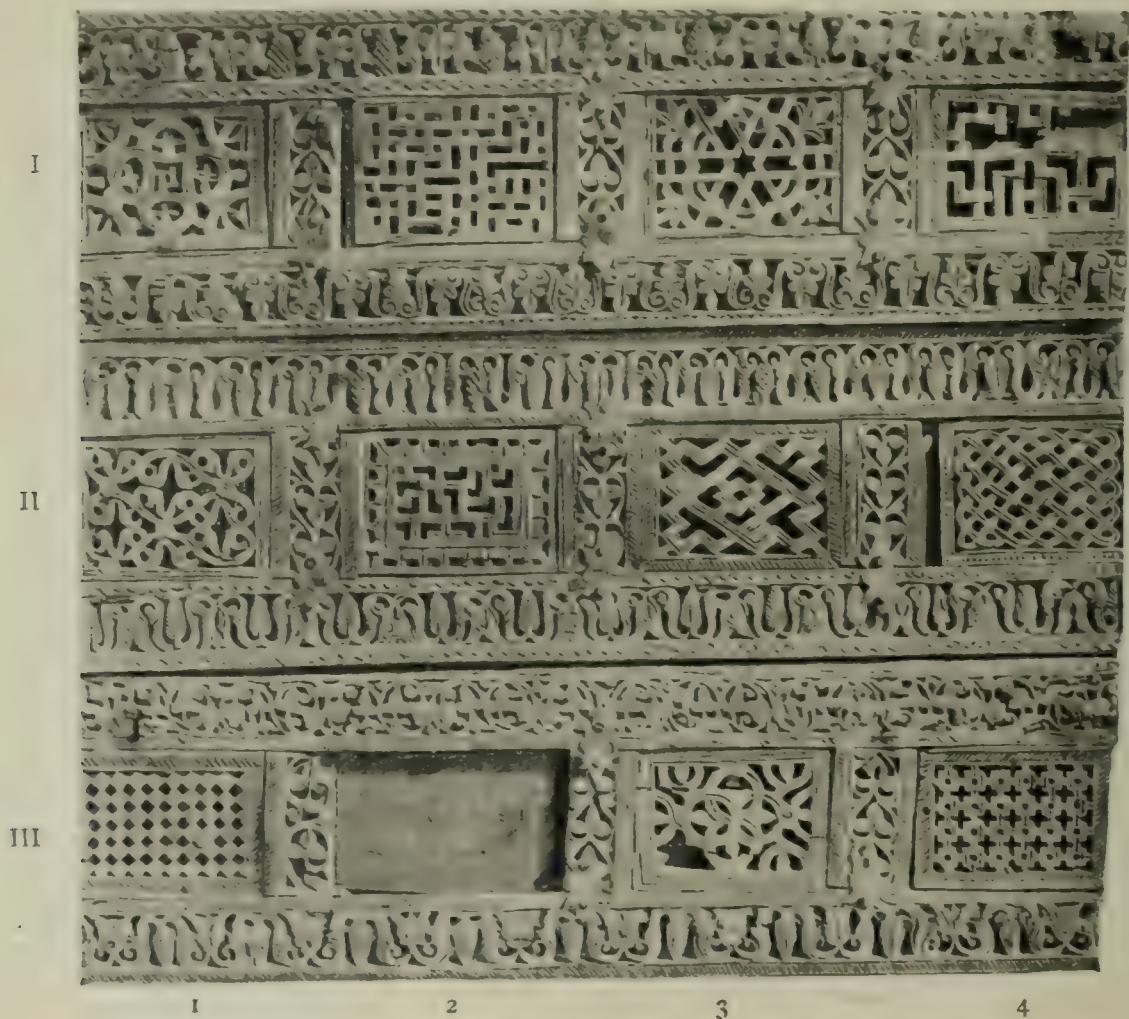 I
II
III
1 2 3 4